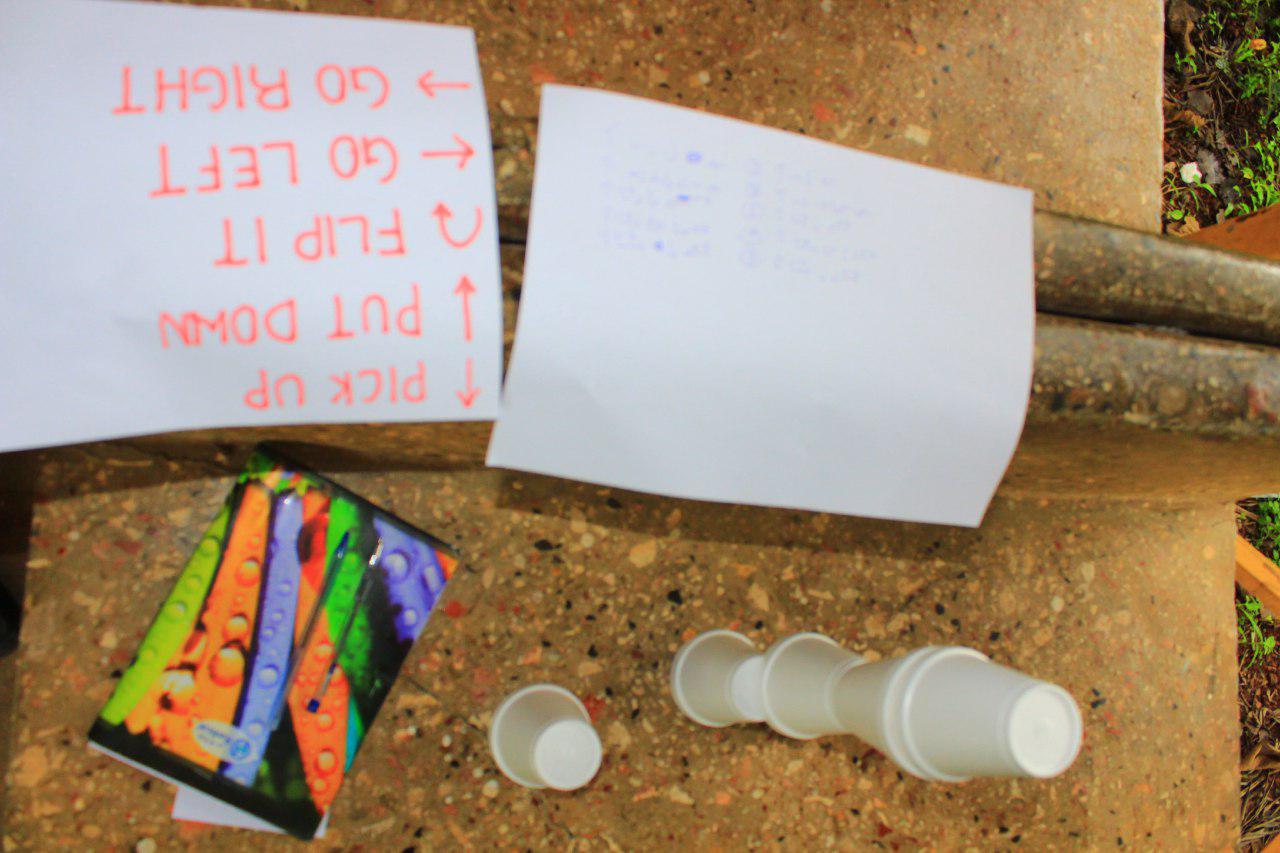 ↑ PICK UP
↓ PUT DOWN
↷ FLIP IT
← GO LEFT
→ GO RIGHT